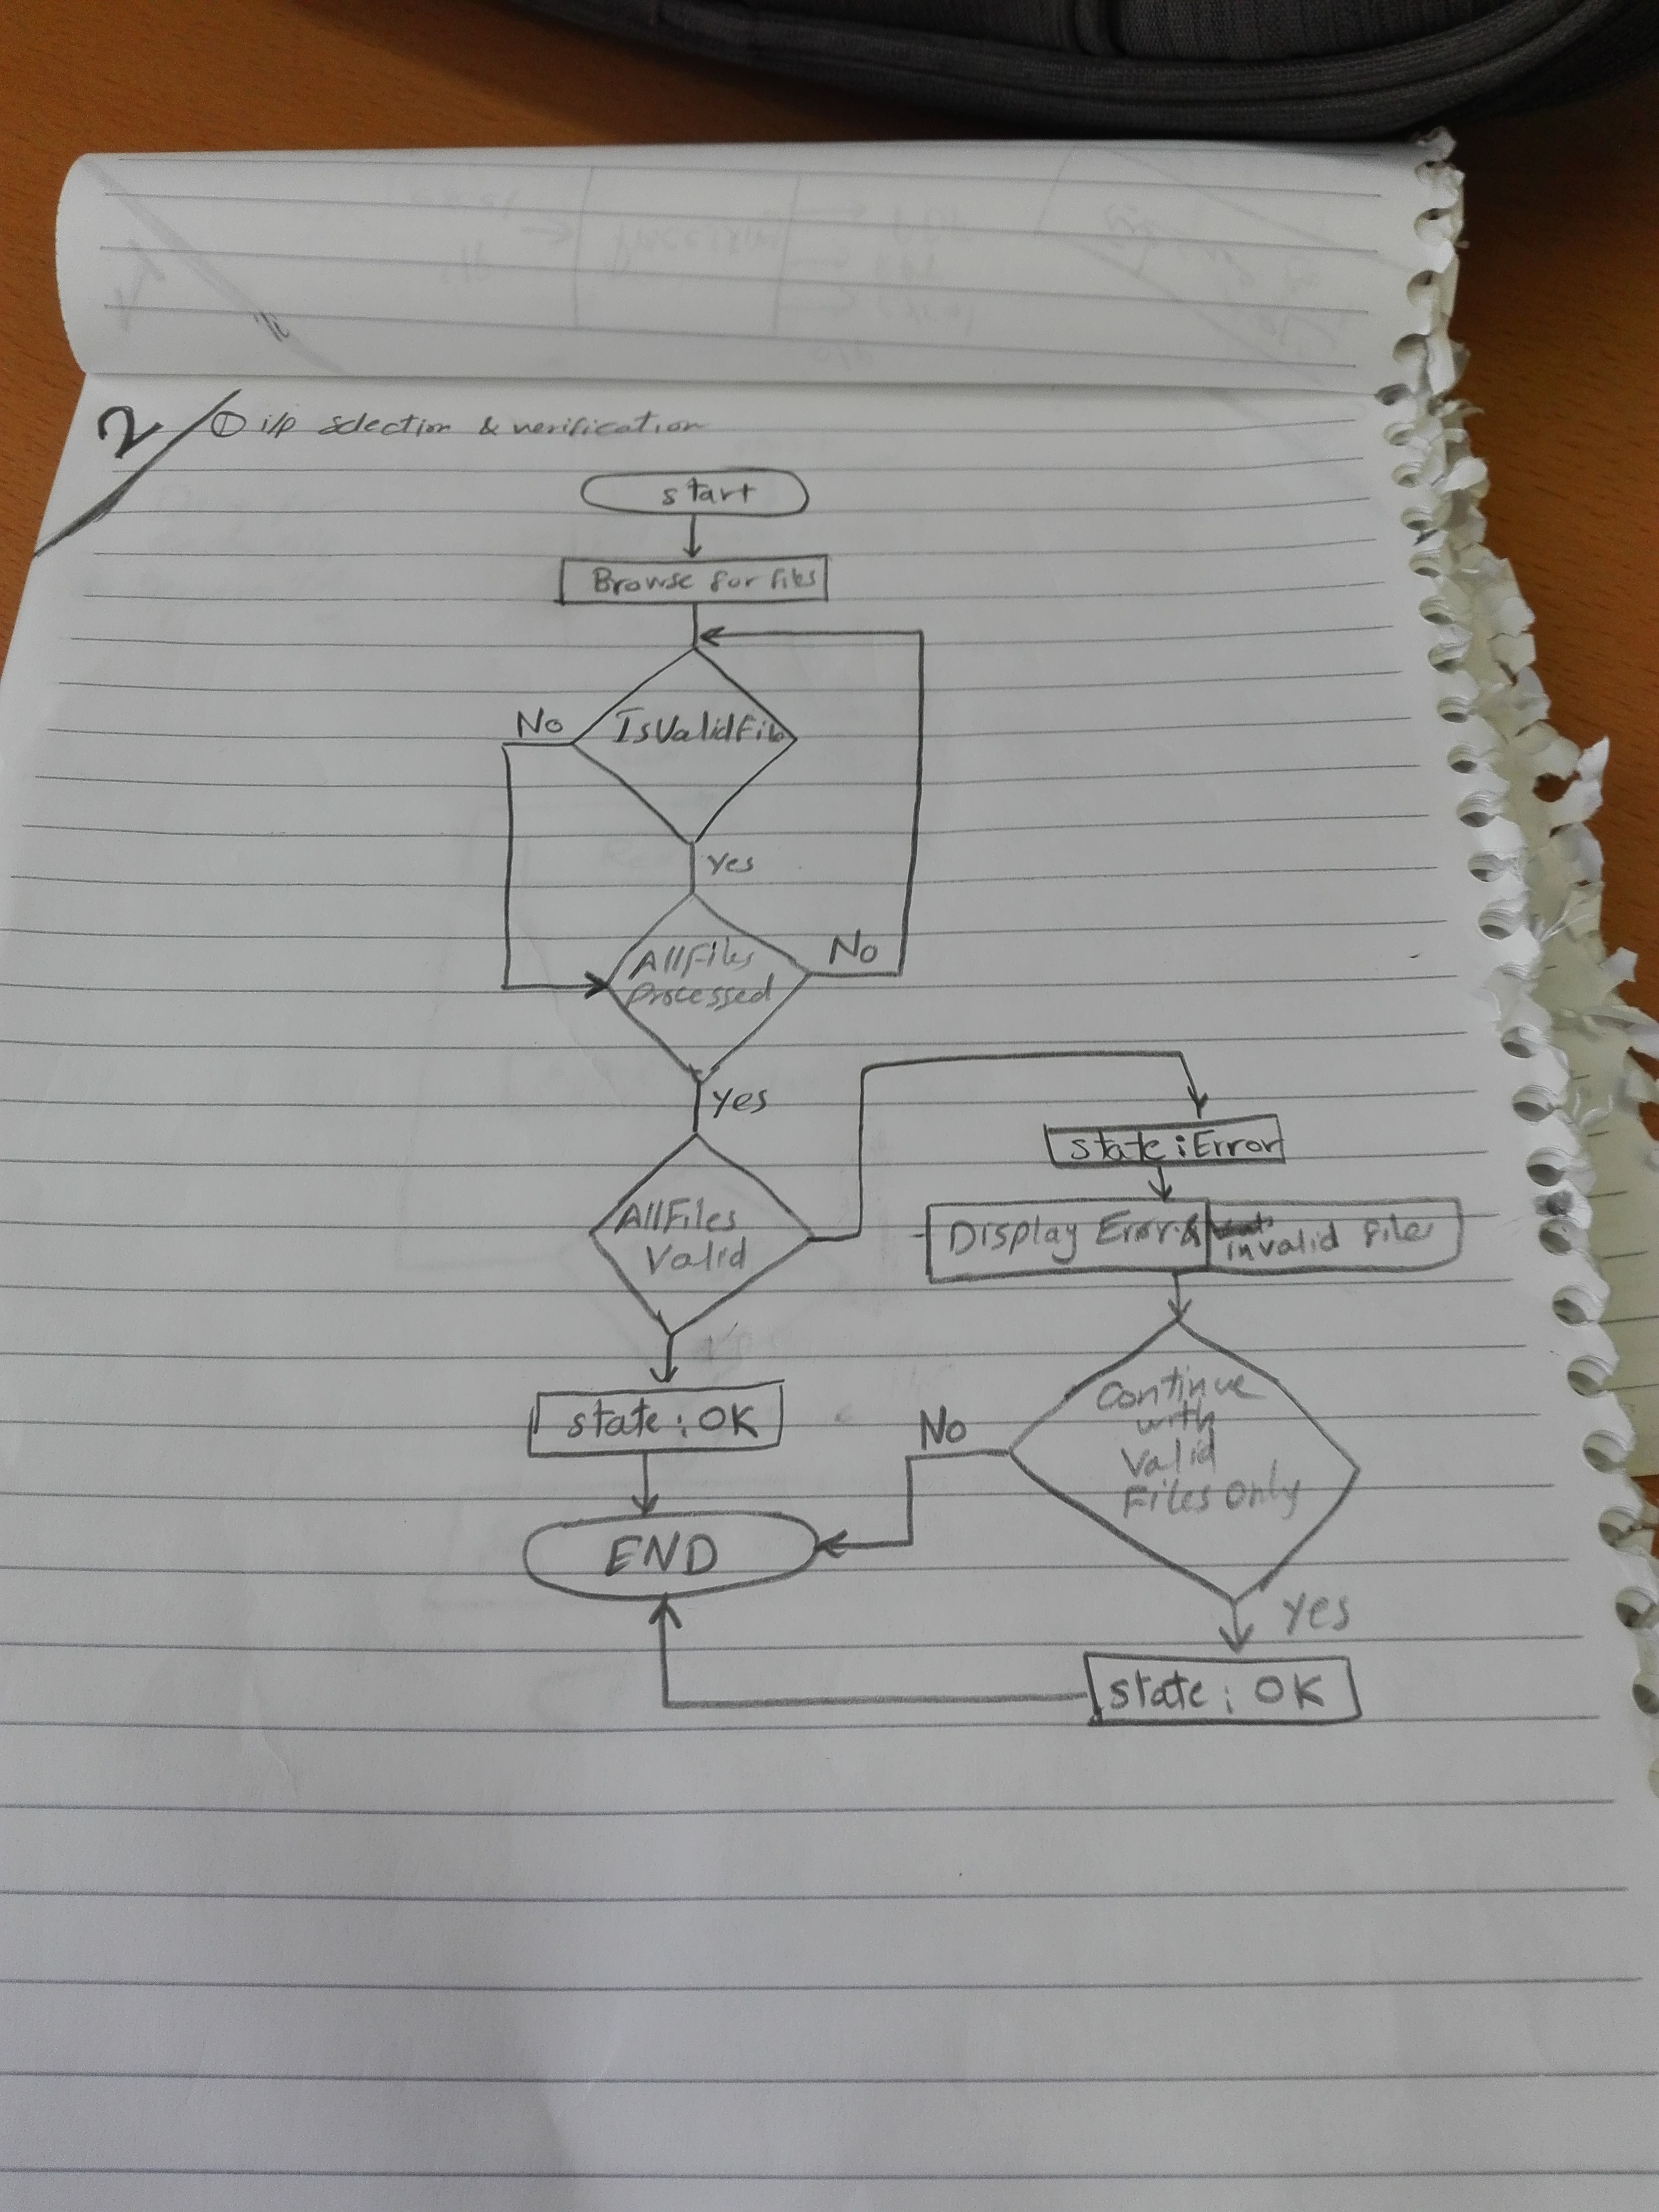 2
① i/p selection & verification
start
Browse for files
IsValidFile
No
Yes
AllFiles
Processed
No
Yes
AllFiles
Valid
state : Error
Display Error & invalid files
state : OK
Continue
with
Valid
Files Only
No
END
Yes
state : OK